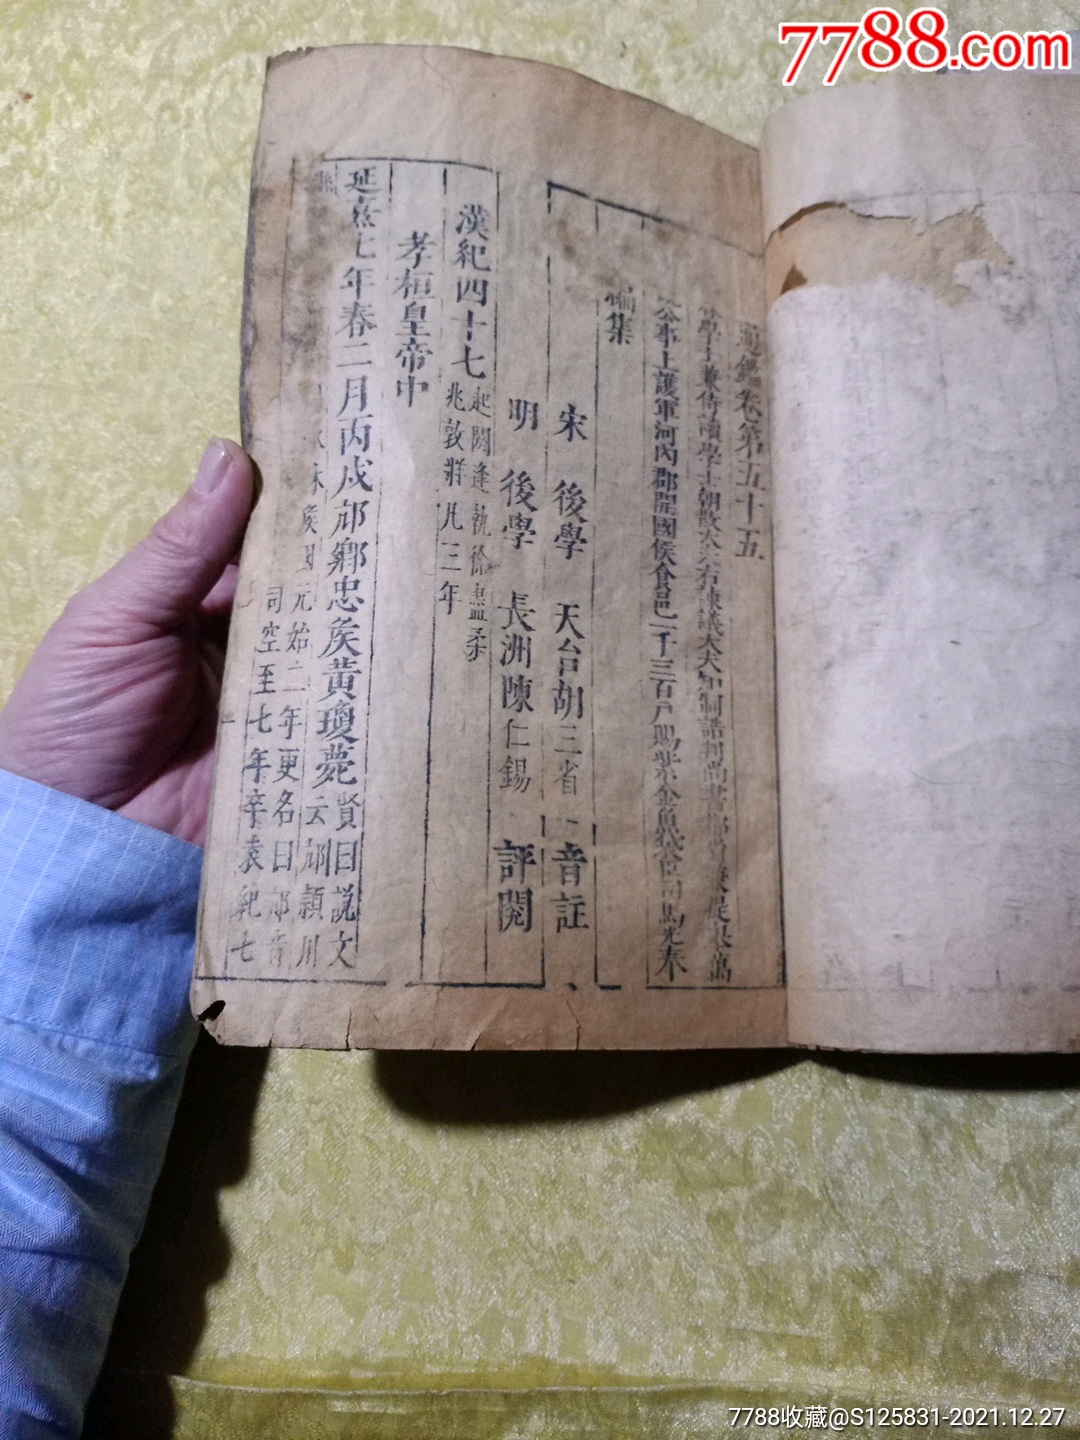 7788.com
通鑑卷第五十五
學士兼侍讀學士朝散大夫右諫議大夫知制誥判尚書都省兼提舉萬
公事上護軍河內郡開國侯食邑一千三百戶賜紫金魚袋臣司馬光奉
編集
宋 後學 天台胡三省 音註
明 後學 長洲陳仁錫 評閱
漢紀四十七 起閼逢執徐盡柔
兆敦牂凡三年
孝桓皇帝中
延熹七年春二月丙戌邟鄉忠矦黃瓊薨 賢曰說文
云邟潁川
矦國元始二年更名曰邟音
司空至七年卒袁紀七
7788收藏@S125831-2021.12.27